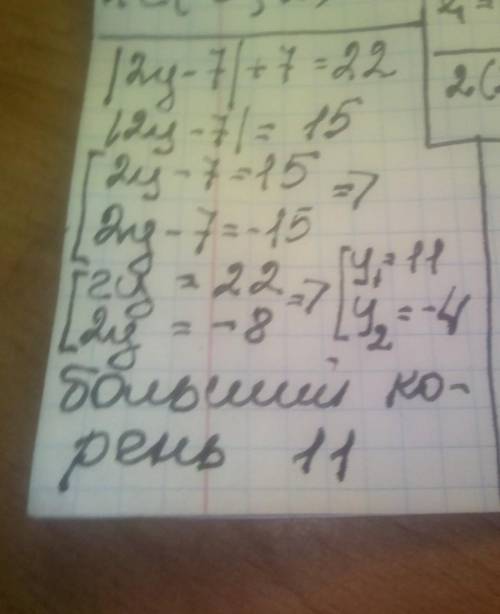 |2y-7|+7=22
|2y-7|=15
[2y-7=15 =>
[2y-7=-15
[2y=22 => [y₁=11
[2y=-8 [y₂=-4
больший ко-
рень 11
2(